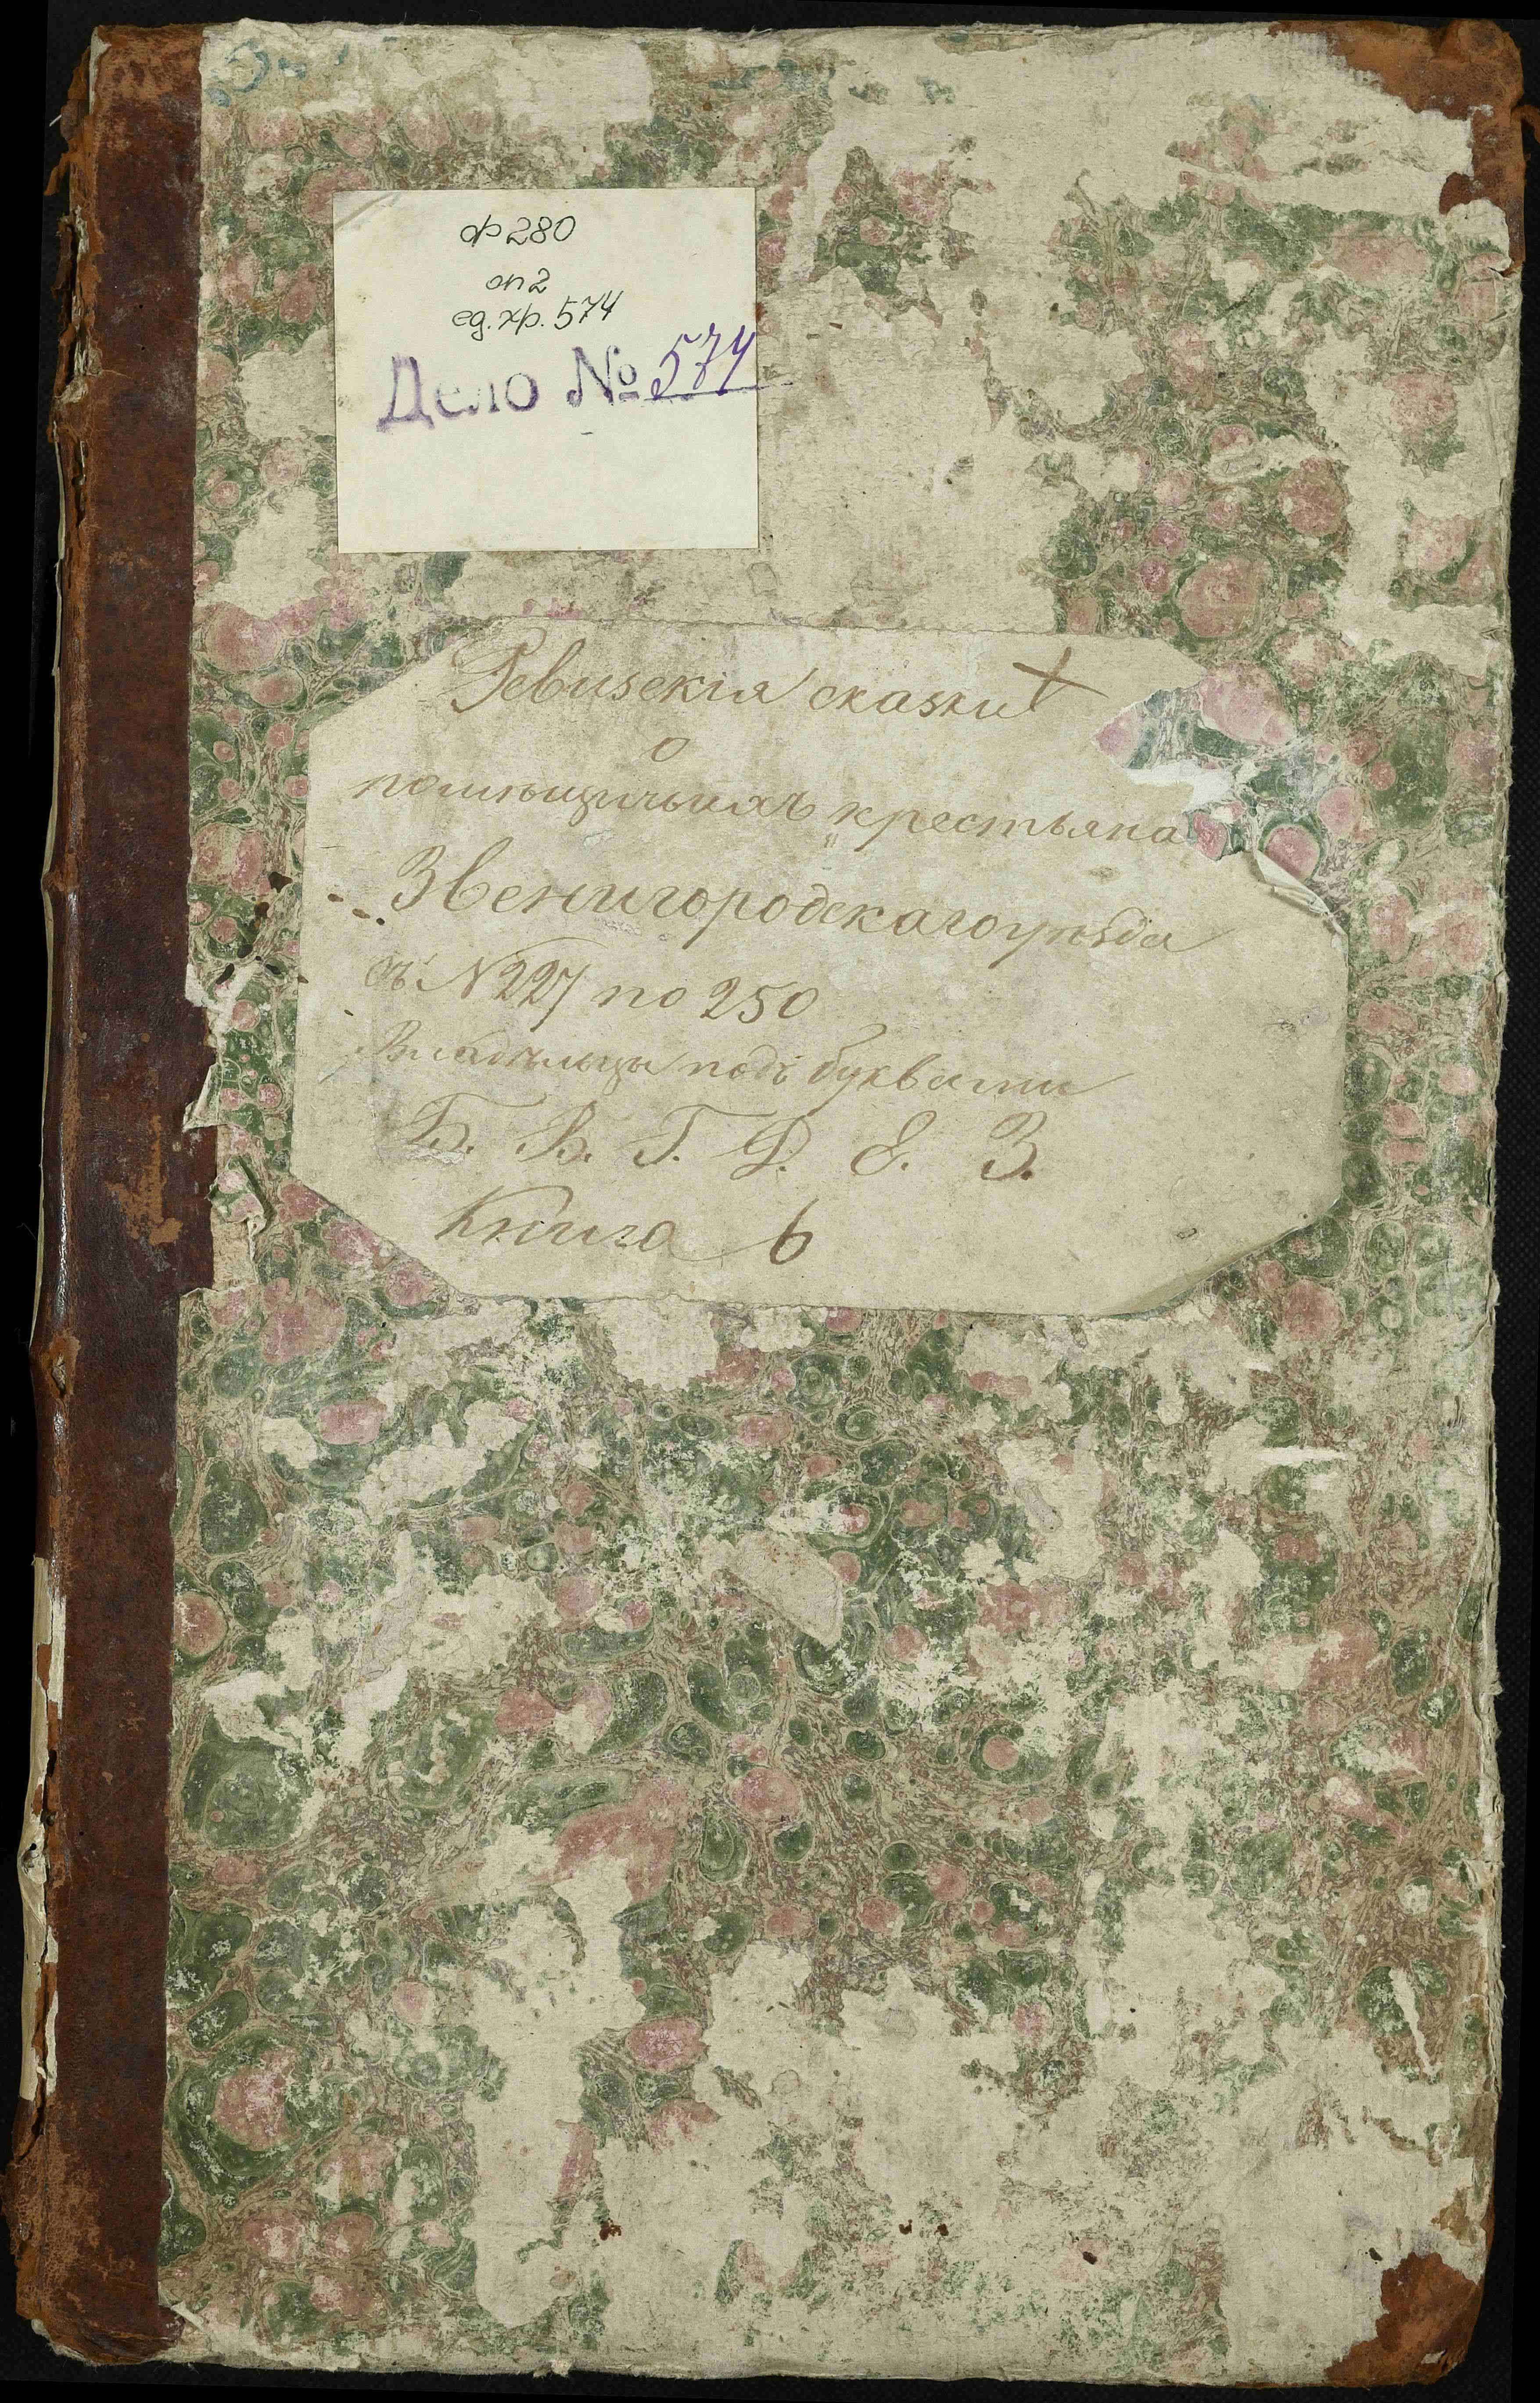 ф 280
оп 2
ед. хр. 574
Дело № 574
Ревизскія сказки
о
помѣщичьихъ крестьяна
Звенигородскаго уѣзда
съ N 227 по 250
Владѣльцы подъ буквами
Б. В. Г. Д. Е. З.
Книга 6